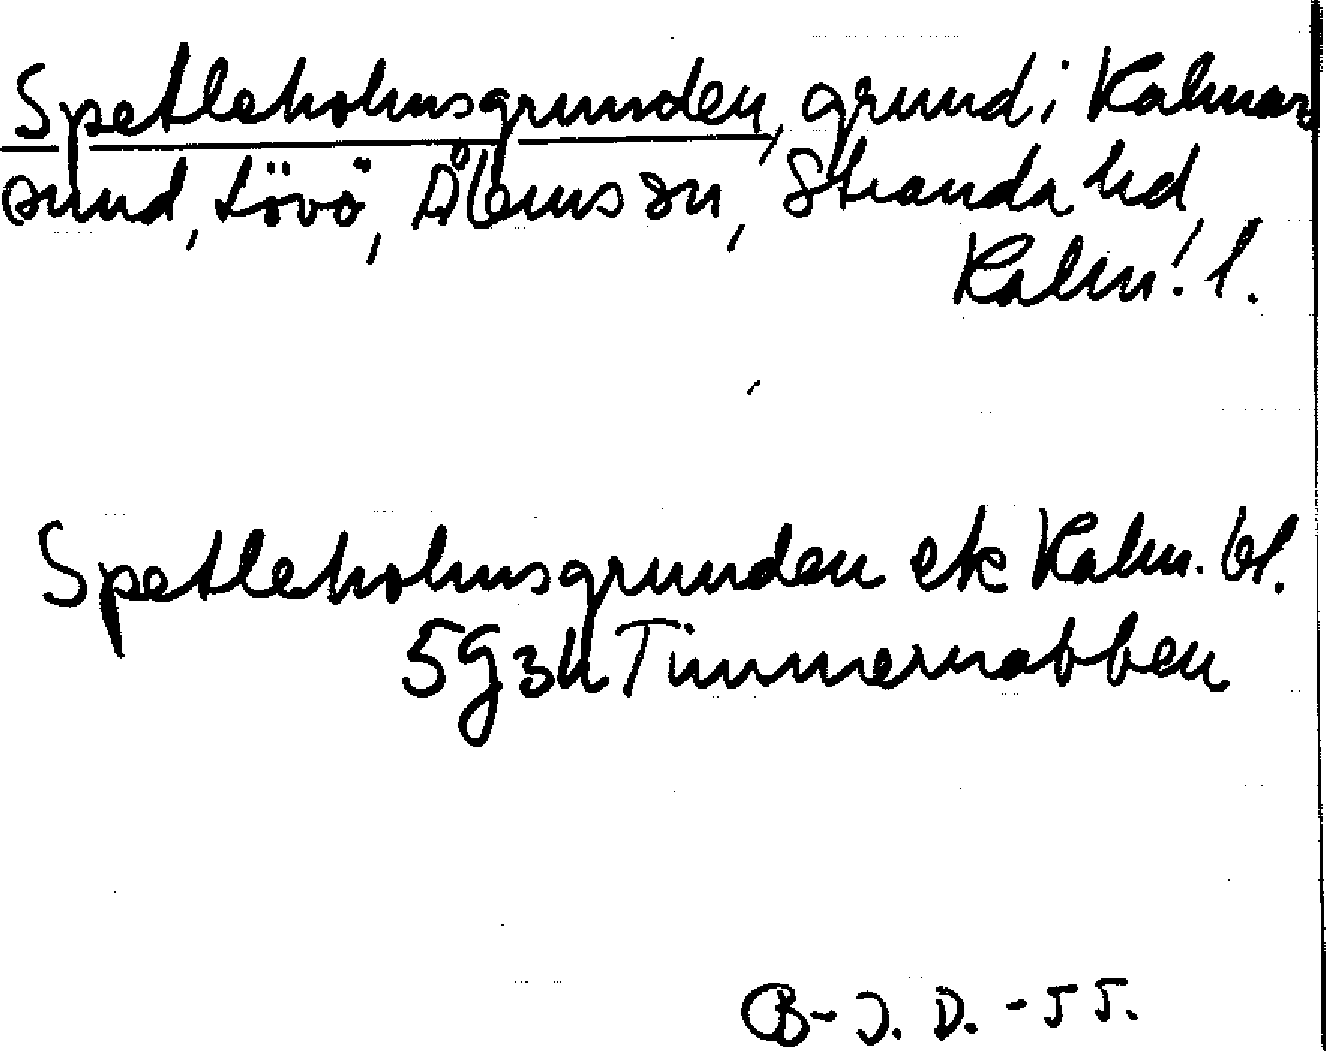 Spetleholmsgrunden, grund i Kalmar
sund, Lövö, Ålems sn, Stranda hd,
Kalm. l.
Spetleholmsgrunden ek Kalm. bl.
5g3h Timmernabben
B-J. D. -55.